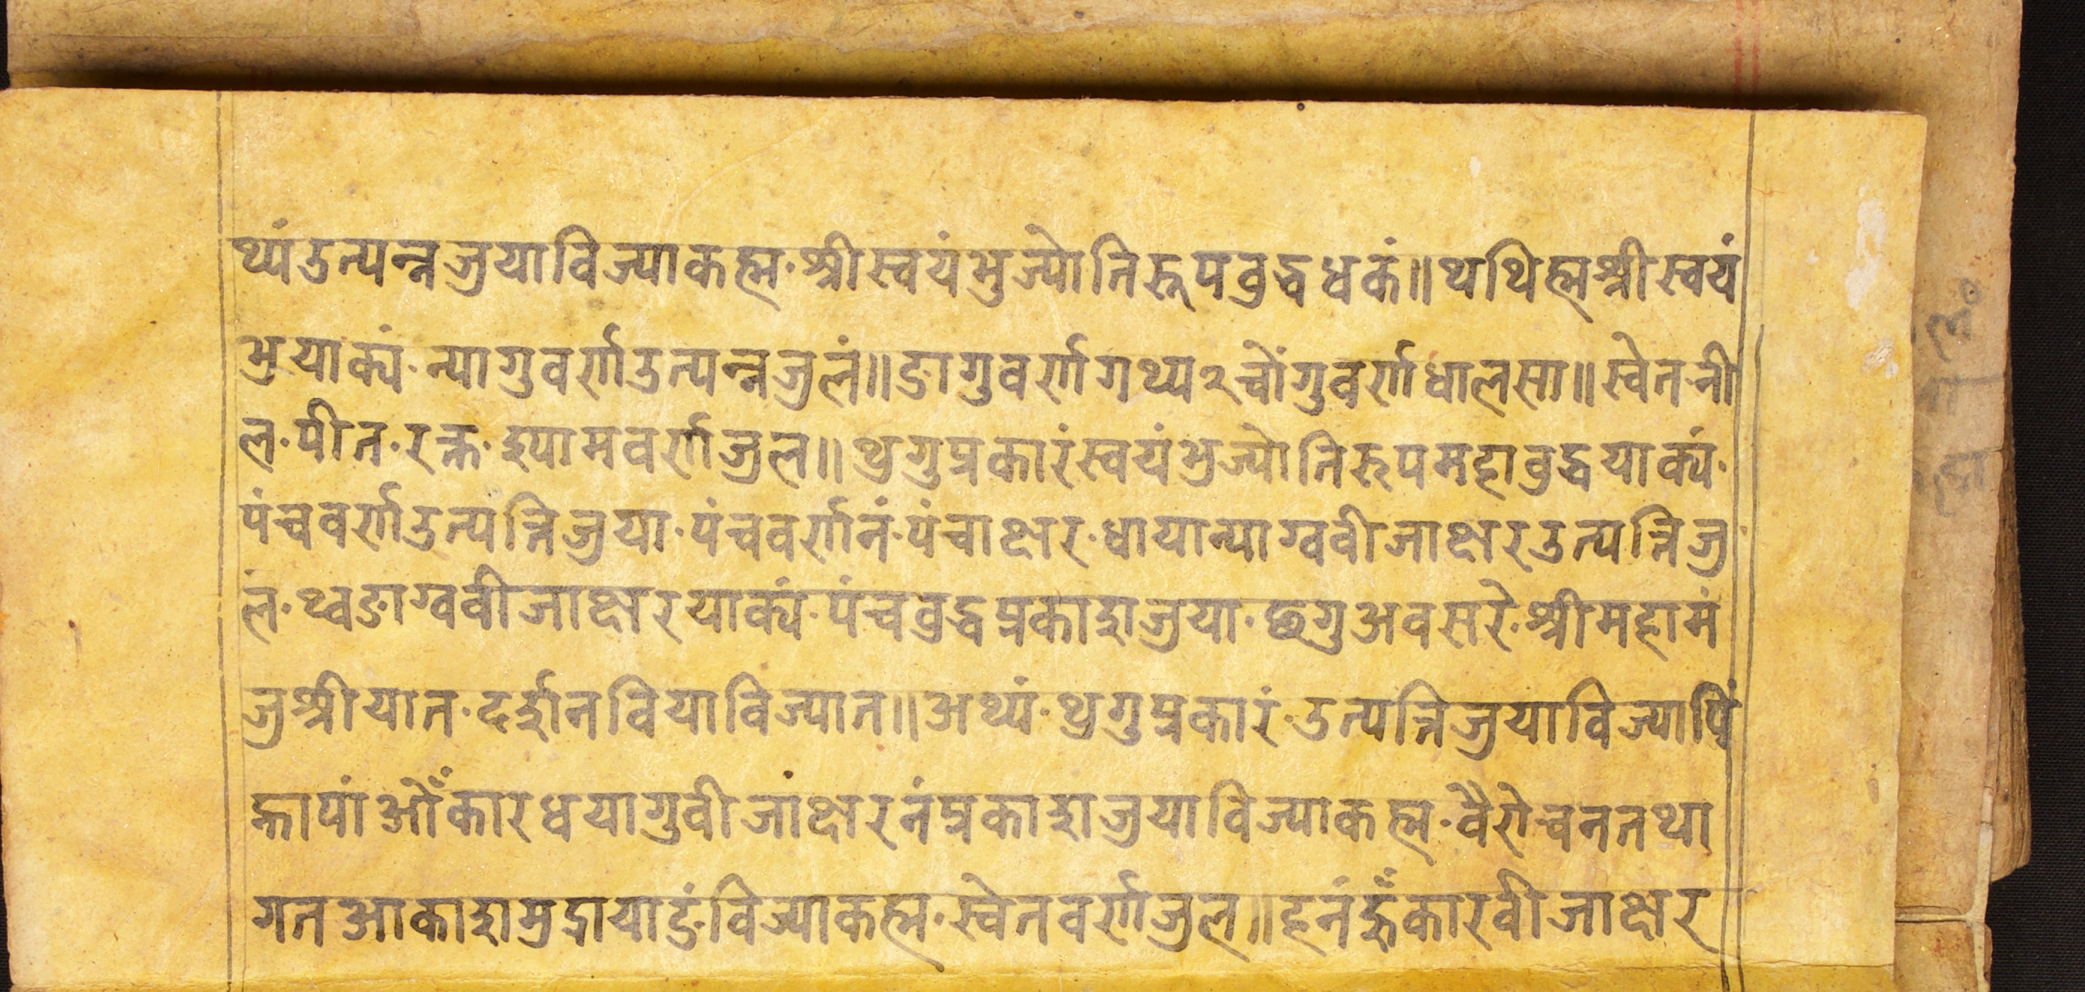 थ्यंउत्पन्नजुयाविज्याकह्म·श्रीस्वयंभुज्योतिरूपवुद्धधकं॥थथिह्मश्रीस्वयं
भुयाक्यं·न्यागुवर्णउत्पन्नजुलं॥ङागुवर्णगथ्य२चोंगुवर्णधालसा॥स्वेत·नी
ल·पीत·रक्त·श्यामवर्णजुल॥थ्रगुप्रकारंस्वयंभुज्योतिरूपमहावुद्धयाक्यं·
पंचवर्णउत्पन्निजुया·पंचवर्णनं·पंचाक्षर·धायान्याग्ववीजाक्षरउत्पन्निजु
लं·थ्वङाग्ववीजाक्षरयाक्यं·पंचवुद्धप्रकाशजुया·छगुअवसरे·श्रीमहामं
जुश्रीयात·दर्शनवियाविज्यात॥अथ्यं·थ्रगुप्रकारं·उत्पन्निजुयाविज्यापिं
ह्नापांओँकारधयागुवीजाक्षरनंप्रकाशजुयाविज्याकह्म·वैरोचनतथा
गतआकाशमुद्रायाङंविज्याकह्म·स्वेतवर्णजुल॥हनंहूँकारवीजाक्षर